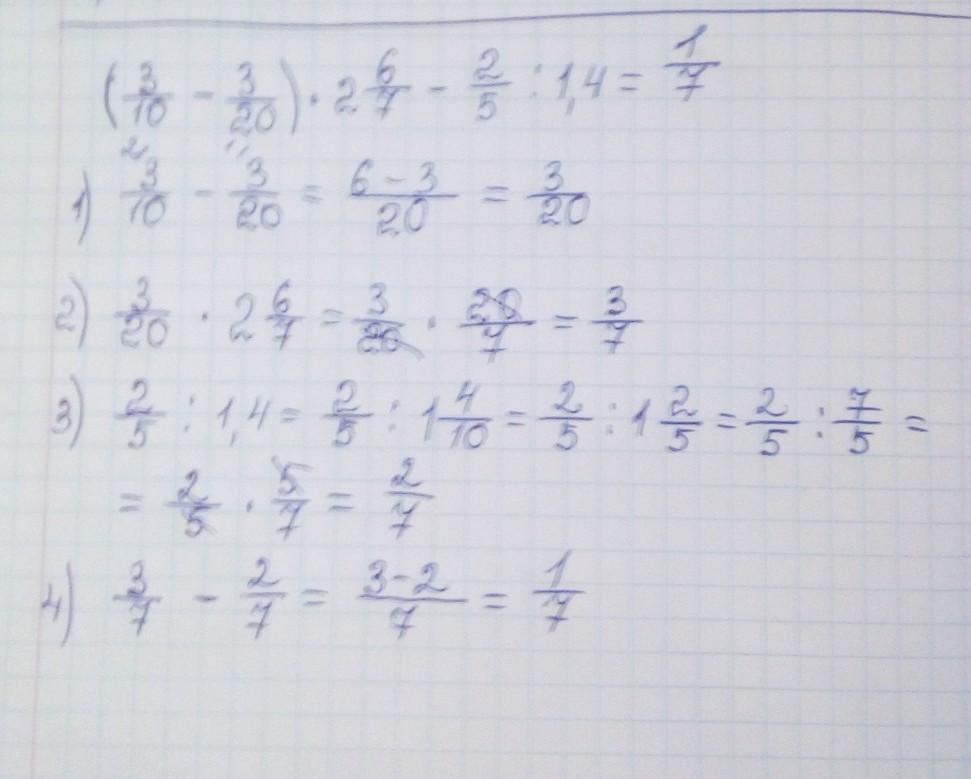 (3/10 - 3/20) · 2 6/7 - 2/5 : 1,4 = 1/7
1) 3/10 - 3/20 = (6 - 3)/20 = 3/20
2) 3/20 · 2 6/7 = 3/20 · 20/7 = 3/7
3) 2/5 : 1,4 = 2/5 : 1 4/10 = 2/5 : 1 2/5 = 2/5 : 7/5 =
= 2/5 · 5/7 = 2/7
4) 3/7 - 2/7 = (3-2)/7 = 1/7